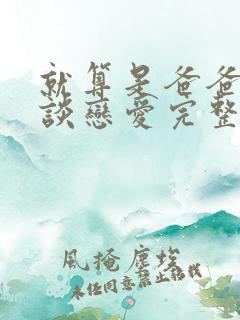 就算是爸爸
談戀愛完整
風掩塵埃
未經同意禁止轉載